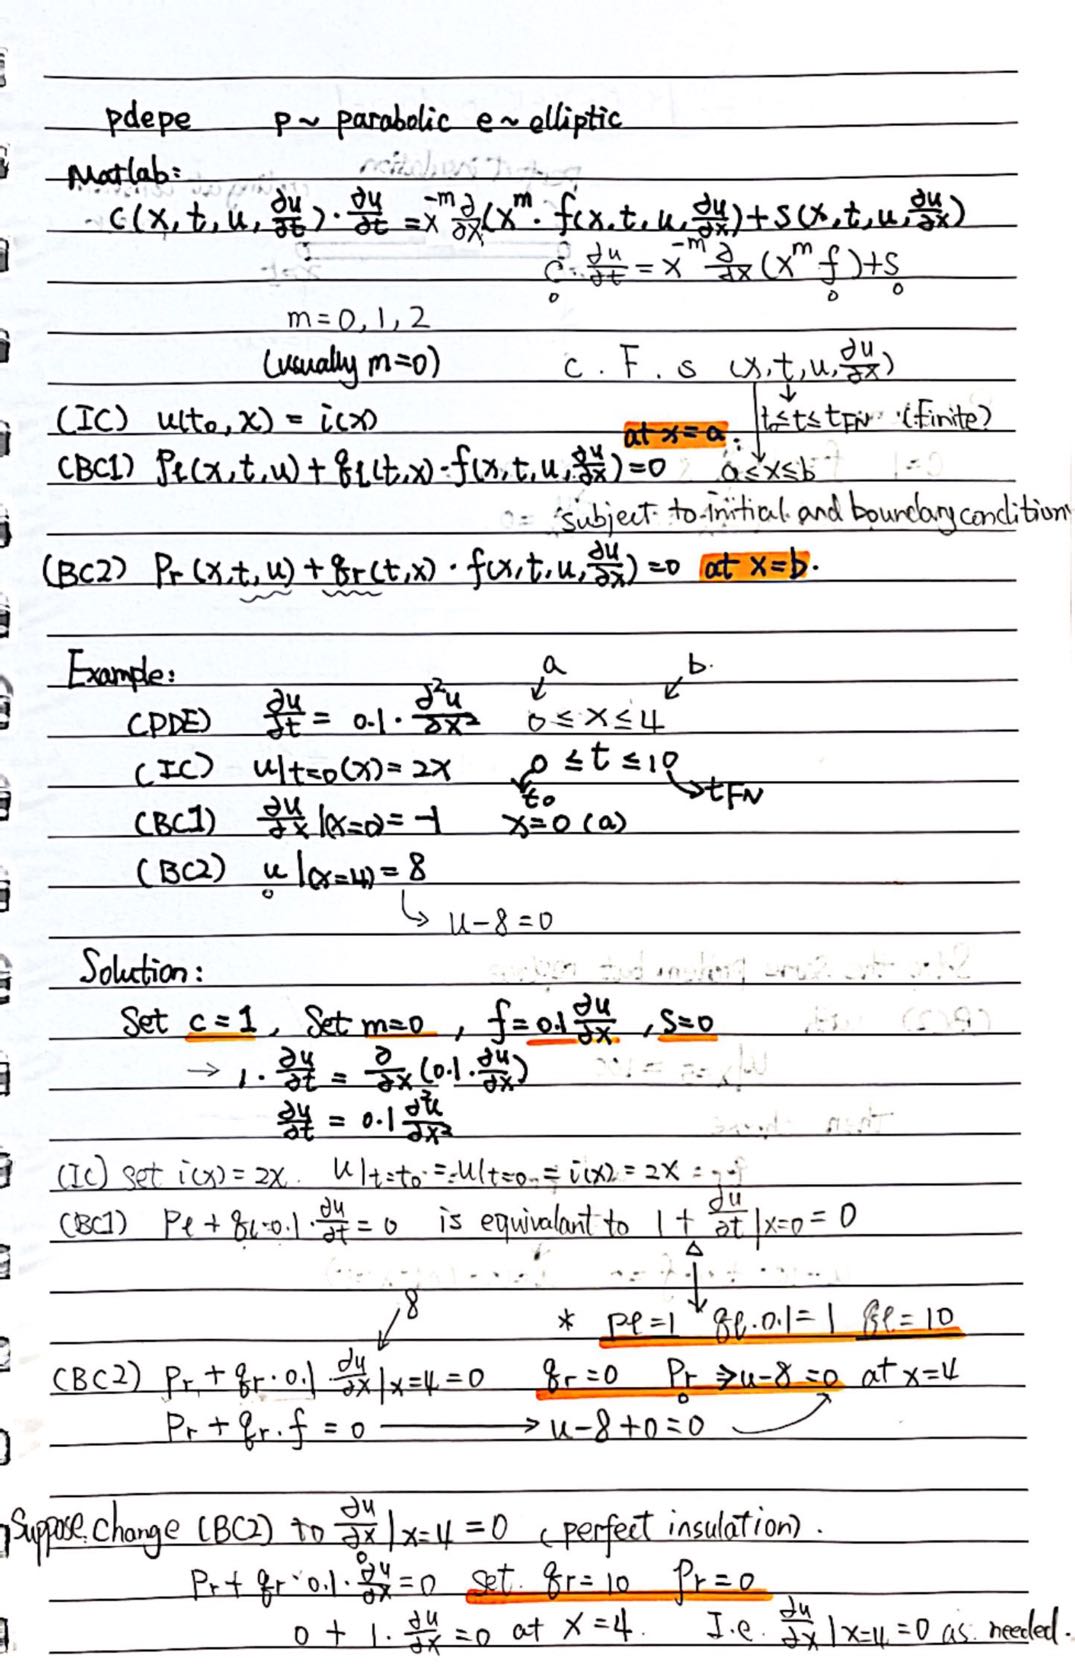 pdepe p~ parabolic e~elliptic
Matlab:
C(x,t,u,∂u/∂t)·∂u/∂t = x^-m ∂/∂x(x^m · f(x,t,u,∂u/∂x)+S(x,t,u,∂u/∂x)
C·∂u/∂t = x^-m ∂/∂x (x^m f)+S
m=0,1,2
(usually m=0) c. F. s (x,t,u,∂u/∂x)
(IC) u(t₀,x) = i(x) at x=a. t₀≤t≤tFN (finite)
(BC1) Pℓ(x,t,u)+qℓ(t,x)·f(x,t,u,∂u/∂x)=0 a≤x≤b
subject to initial and boundary condition
(BC2) Pr(x,t,u)+qr(t,x)·f(x,t,u,∂u/∂x)=0 at x=b.
Example: a b.
(PDE) ∂u/∂t = 0.1·∂²u/∂x² 0≤x≤4
(IC) u|t=0(x)=2x 0≤t≤10
t₀ tFN
(BC1) ∂u/∂x|(x=0)=-1 x=0 (a)
(BC2) u|(x=4)=8
↳ u-8=0
Solution:
Set c=1, Set m=0, f=0.1∂u/∂x, S=0
→ 1·∂u/∂t = ∂/∂x(0.1·∂u/∂x)
∂u/∂t = 0.1 ∂²u/∂x²
(IC) set i(x)=2x. u|t=t₀ = u|t=0 = i(x)=2x
(BC1) Pℓ+qℓ·0.1·∂u/∂t=0 is equivalent to 1+∂u/∂t|x=0=0
8 * Pℓ=1 qℓ·0.1=1 qℓ=10
(BC2) Pr+qr·0.1·∂u/∂x|x=4=0 qr=0 Pr⇒u-8=0 at x=4
Pr+qr·f=0 → u-8+0=0
Suppose change (BC2) to ∂u/∂x|x=4=0 (perfect insulation).
Pr+qr·0.1·∂u/∂x=0 set qr=10 Pr=0
0+1·∂u/∂x=0 at x=4. I.e. ∂u/∂x|x=4=0 as needed.